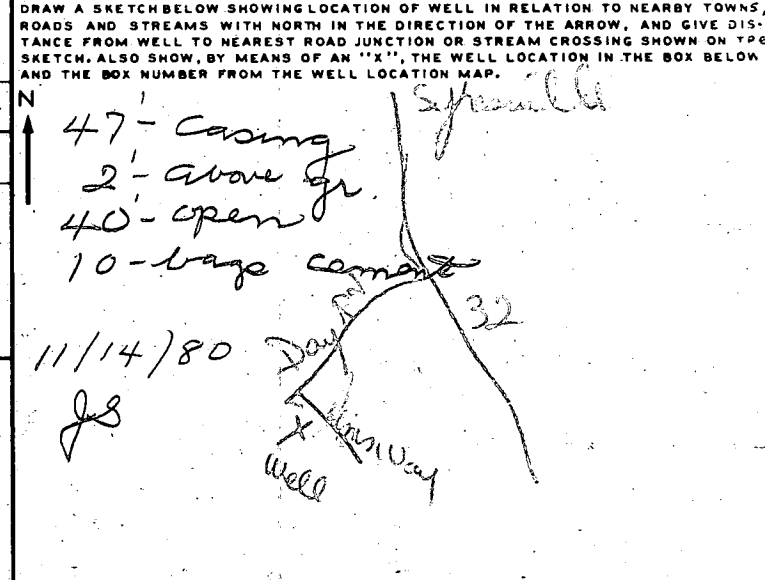 DRAW A SKETCH BELOW SHOWING LOCATION OF WELL IN RELATION TO NEARBY TOWNS,
ROADS AND STREAMS WITH NORTH IN THE DIRECTION OF THE ARROW, AND GIVE DIS-
TANCE FROM WELL TO NEAREST ROAD JUNCTION OR STREAM CROSSING SHOWN ON
SKETCH. ALSO SHOW, BY MEANS OF AN "X", THE WELL LOCATION IN THE BOX BELOW
AND THE BOX NUMBER FROM THE WELL LOCATION MAP.
N
47'- Casing
2'- above gr.
40'- open
10-bags cement
32
Day Rd
11/14/80
JS
X
Way
Well